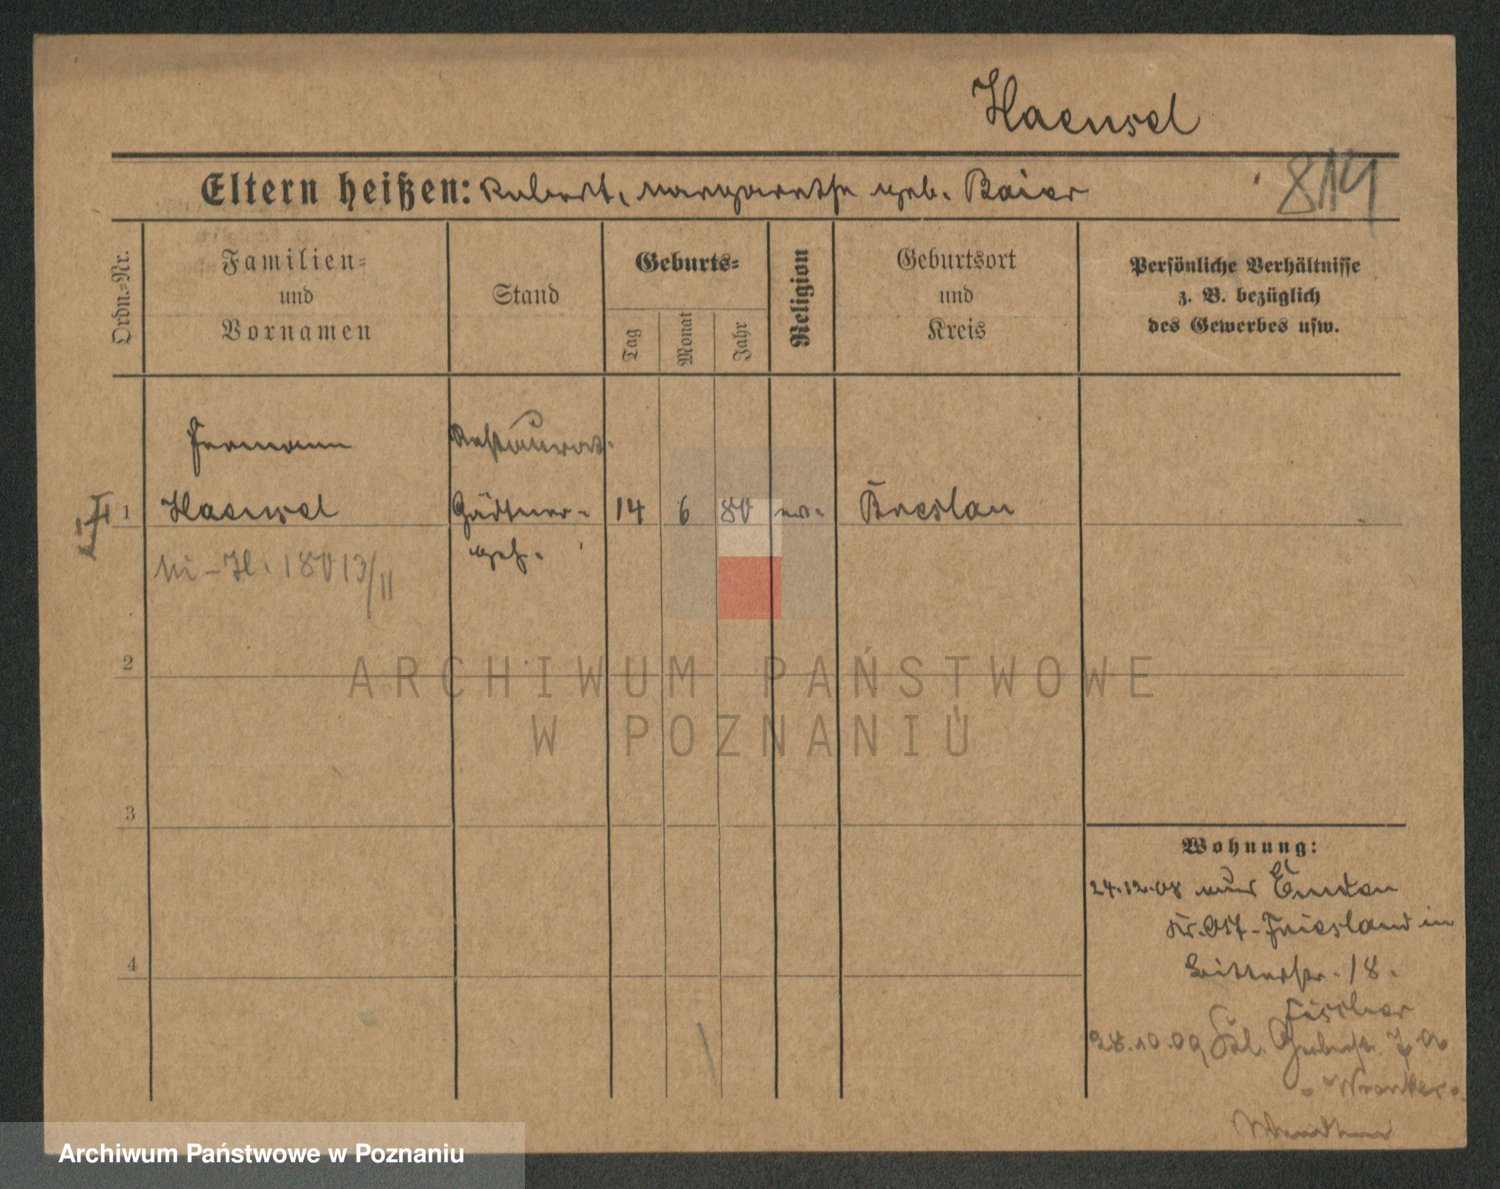 Haensel
814
Eltern heißen: Robert, Margarethe geb. Baier
Ordn.-Nr.
Familien-
und
Vornamen
Stand
Geburts-
Tag
Monat
Jahr
Religion
Geburtsort
und
Kreis
Persönliche Verhältnisse
z. B. bezüglich
des Gewerbes usw.
Hermann
Restaurat.
1 Haensel Gärtner- 14 6 80 ev. Breslau
geh.
180 13/11
2
3
4
Wohnung:
24.12.08 Emden
Kr. Ost-Friesland in
18.
Fischer
28.10.09 Gerberstr. 7
Wronker
ARCHIWUM PAŃSTWOWE
W POZNANIU
Archiwum Państwowe w Poznaniu